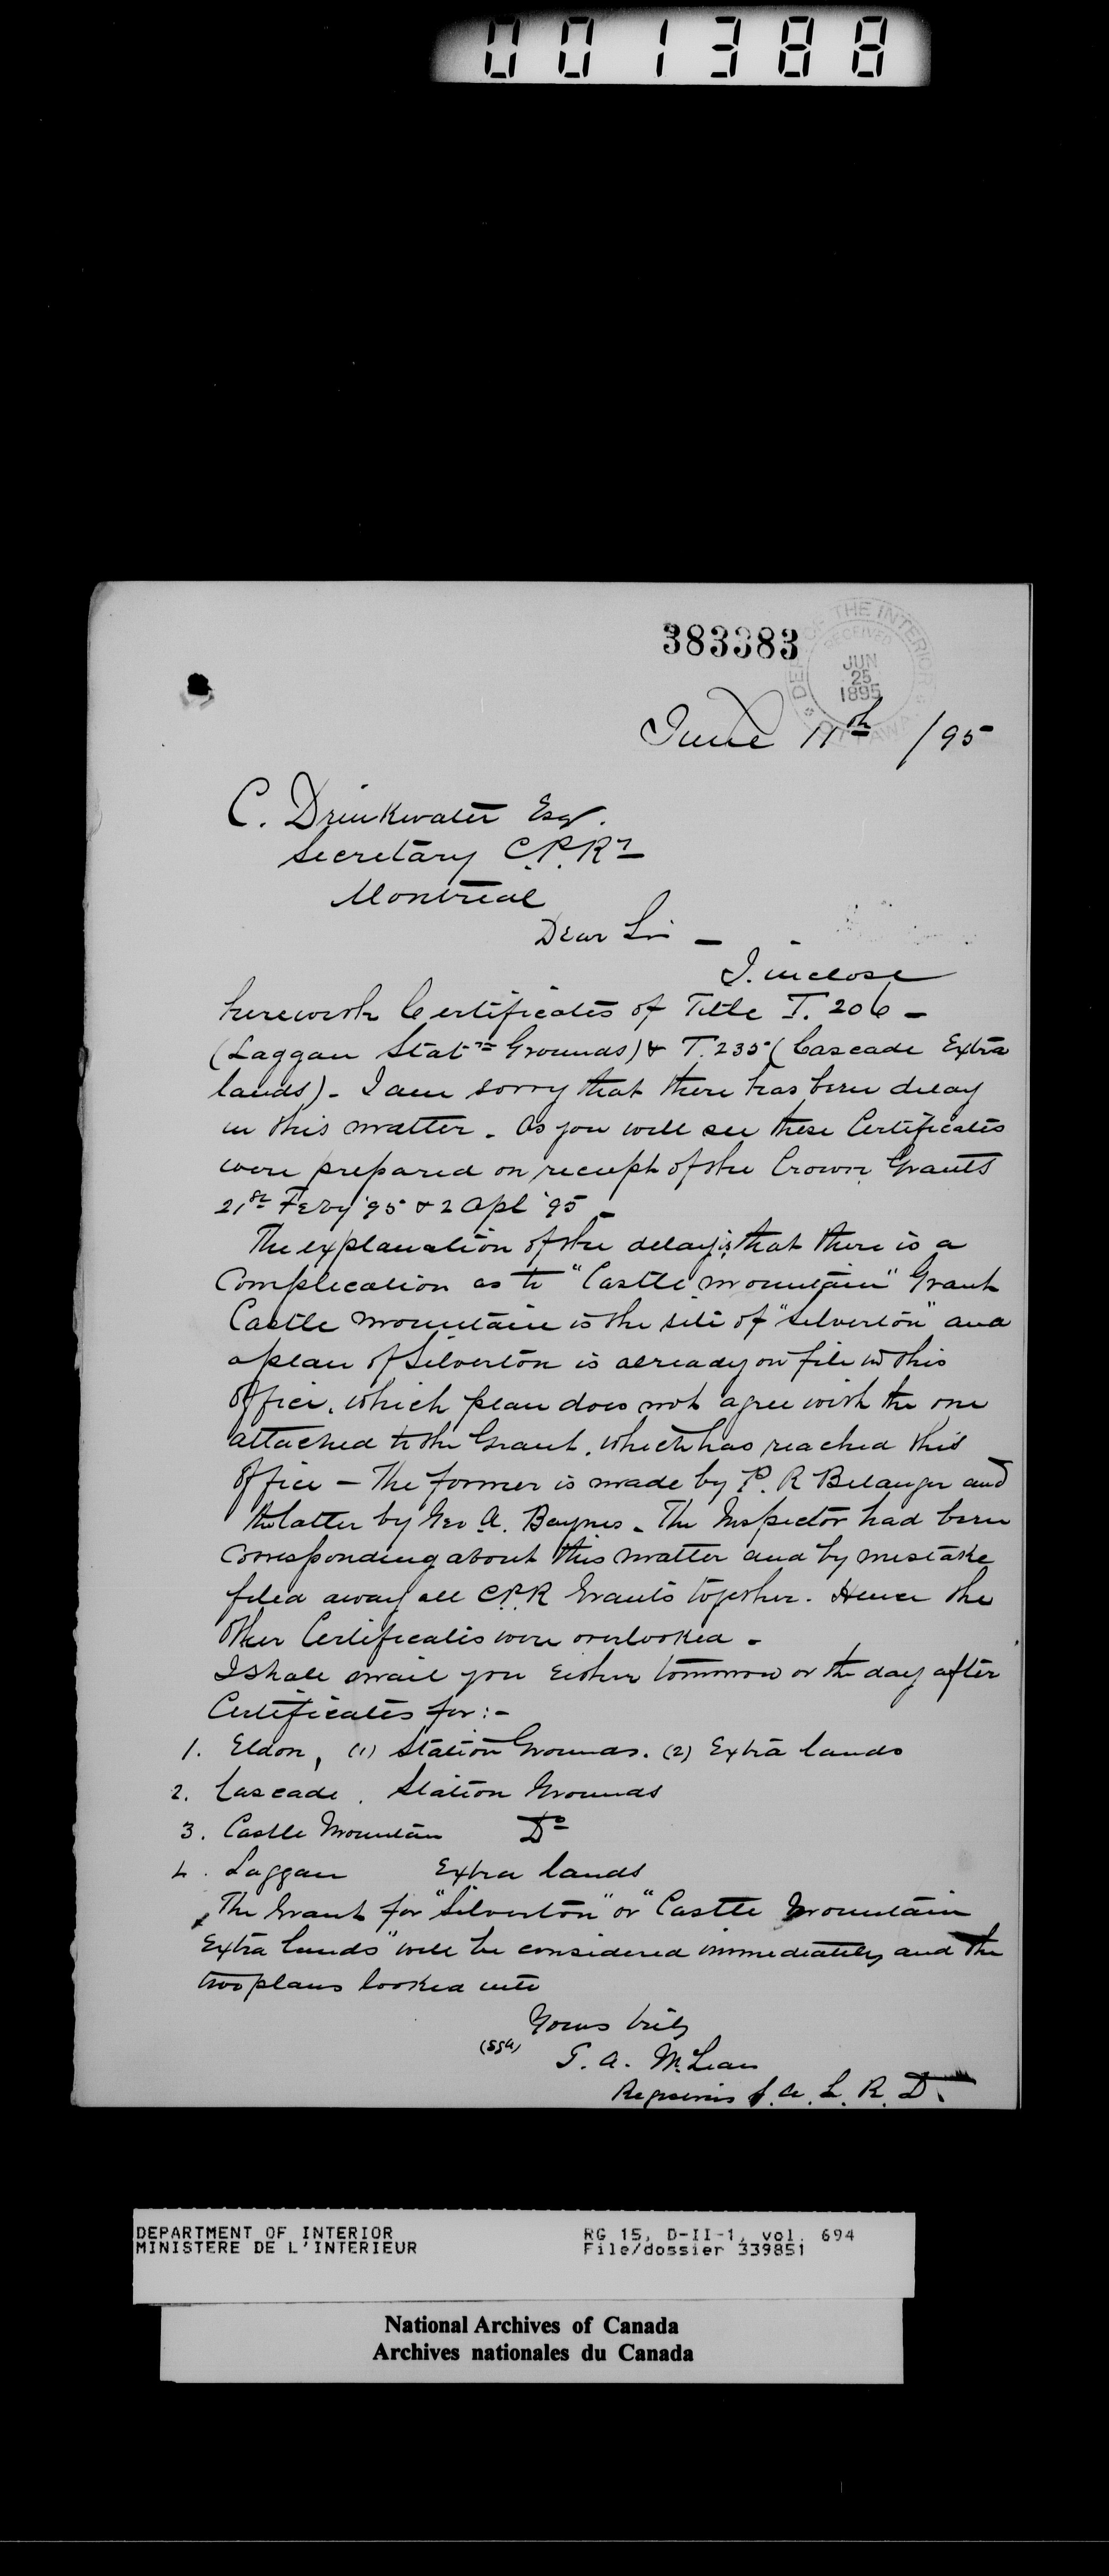 001388
383383
DEPT OF THE INTERIOR
RECEIVED
JUN
25
1895
OTTAWA
June 11th /95
C. Drinkwater Esq.
Secretary C.P.Ry
Montreal
Dear Sir –
I inclose
herewith Certificates of Title T. 206 –
(Laggan Statn Grounds) & T. 235 (Cascade Extra
lands). I am sorry that there has been delay
in this matter. As you will see these Certificates
were prepared on receipt of the Crown Grants
21st Feby '95 & 2 Apl '95 –
The explanation of the delay is that there is a
Complication as to "Castle Mountain" Grant
Castle Mountain is the site of "Silverton" and
a plan of Silverton is already on file in this
Office, which plan does not agree with the one
attached to the Grant, which has reached this
Office – The former is made by P. R Belanger and
the latter by Geo A. Bayne. The Inspector had been
corresponding about this matter and by mistake
filed away all C.P.R Grants together. Hence the
other Certificates were overlooked.
I shall mail you either tommrow or the day after
Certificates for :-
1. Eldon, (1) Station Grounds. (2) Extra lands
2. Cascade. Station Grounds
3. Castle Mountain Do
4. Laggan Extra lands
The Grant for "Silverton" or "Castle Mountain
Extra lands" will be considered immediately and the
two plans looked into
Yours truly
(sgd)
A. McLean
L. R. D.
DEPARTMENT OF INTERIOR
MINISTERE DE L'INTERIEUR
RG 15, D-II-1, vol. 694
File/dossier 339851
National Archives of Canada
Archives nationales du Canada